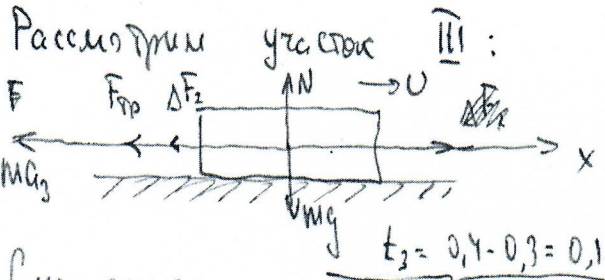 Рассмотрим участок III :
F Fтр ΔF₂ N → U
ma₃ x
mg
t₃ = 0,4 - 0,3 = 0,1